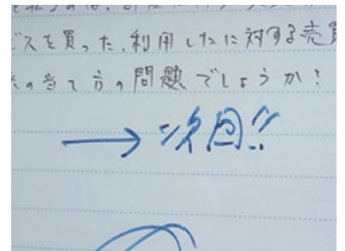 ビスを買った、利用したに対する売買
の当て方の問題でしょうか?
→次回!!